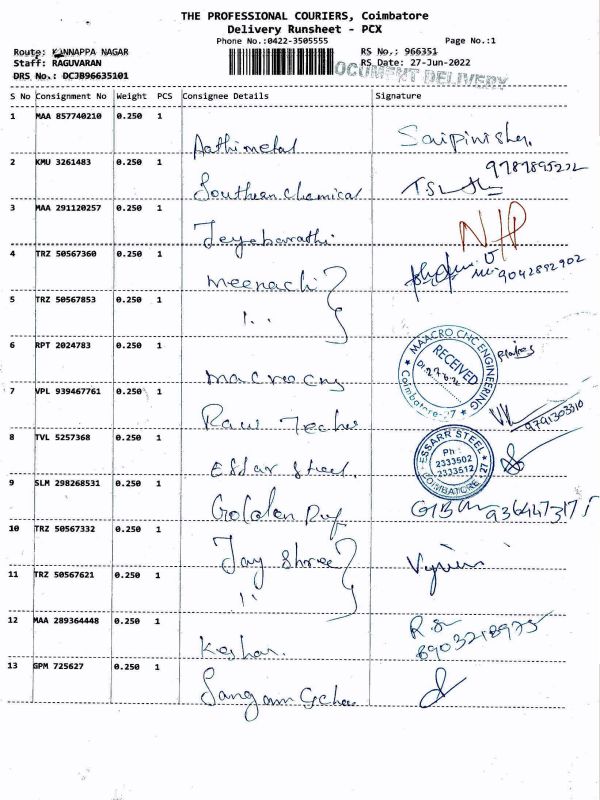 THE PROFESSIONAL COURIERS, Coimbatore
Delivery Runsheet - PCX
Phone No.:0422-3505555 Page No.:1
Route: KANNAPPA NAGAR RS No.: 966351
Staff: RAGUVARAN RS Date: 27-Jun-2022
DRS No.: DCJB96635101 DOCUMENT DELIVERY
S No Consignment No Weight PCS Consignee Details Signature
1 MAA 857740210 0.250 1
Aathimetal
2 KMU 3261483 0.250 1
Southern Chemical
3 MAA 291120257 0.250 1
Jeyabarathi
4 TRZ 50567360 0.250 1
Meenachi 9042892902
5 TRZ 50567853 0.250 1
6 RPT 2024783 0.250 1
MAACRO CNC ENGINEERING
RECEIVED
Coimbatore-27
Macro cnc
7 VPL 939467761 0.250 1
Raw Techno 9791303310
8 TVL 5257368 0.250 1
ESSARR STEEL
Ph :
2333502
2333512
COIMBATORE
Essar Steel.
9 SLM 298268531 0.250 1
Golden
10 TRZ 50567332 0.250 1
Jay Shree
11 TRZ 50567621 0.250 1
12 MAA 289364448 0.250 1
8903218975
13 GPM 725627 0.250 1
Sangam